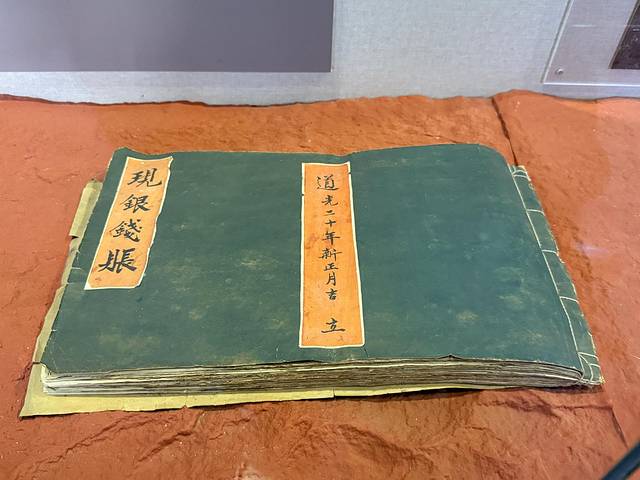 道光二十年新正月吉立
現銀錢賬